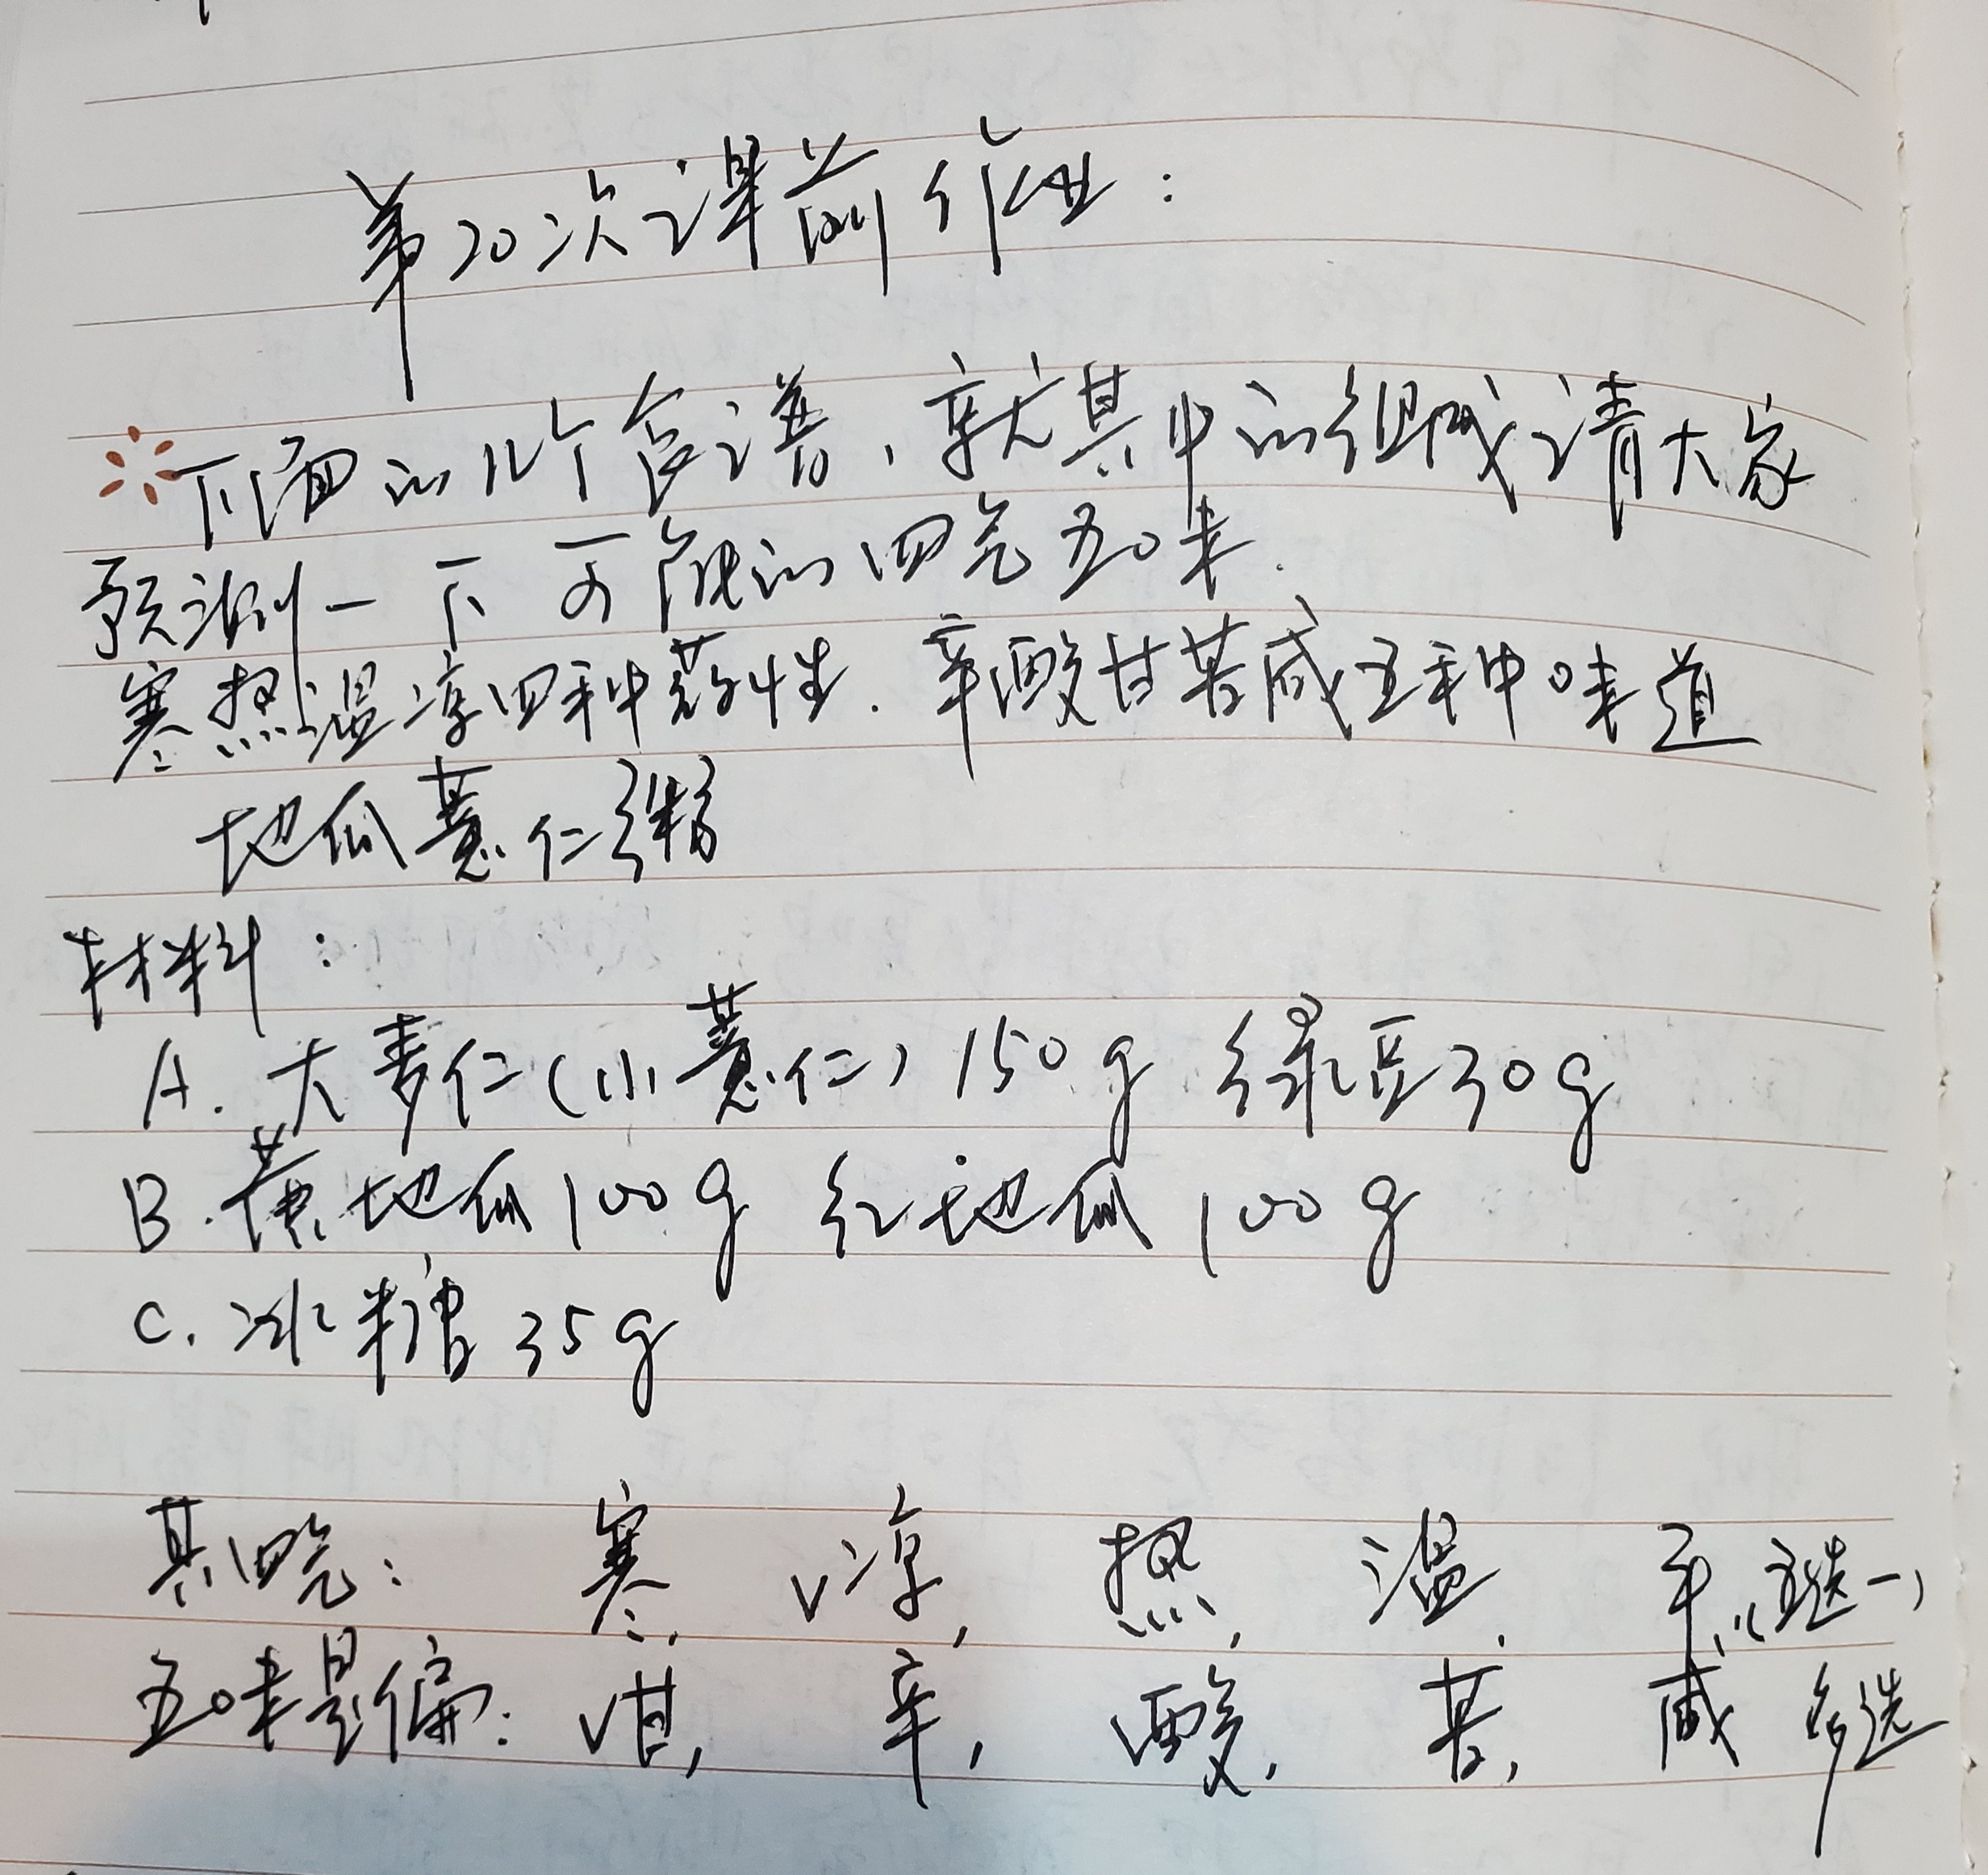 第20次课前作业：
下面的几个食谱，就其中的组成请大家
预测一下可能的四气五味.
寒热温凉四种药性.辛酸甘苦咸五种味道
地瓜薏仁粥
材料：
A.大麦仁(小薏仁)150g 绿豆30g
B.黄地瓜100g 红地瓜100g
C.冰糖35g
其四气： 寒, ✓凉, 热, 温, 平,(五选一)
五味是偏: ✓甘, 辛, 酸, 苦, 咸 多选